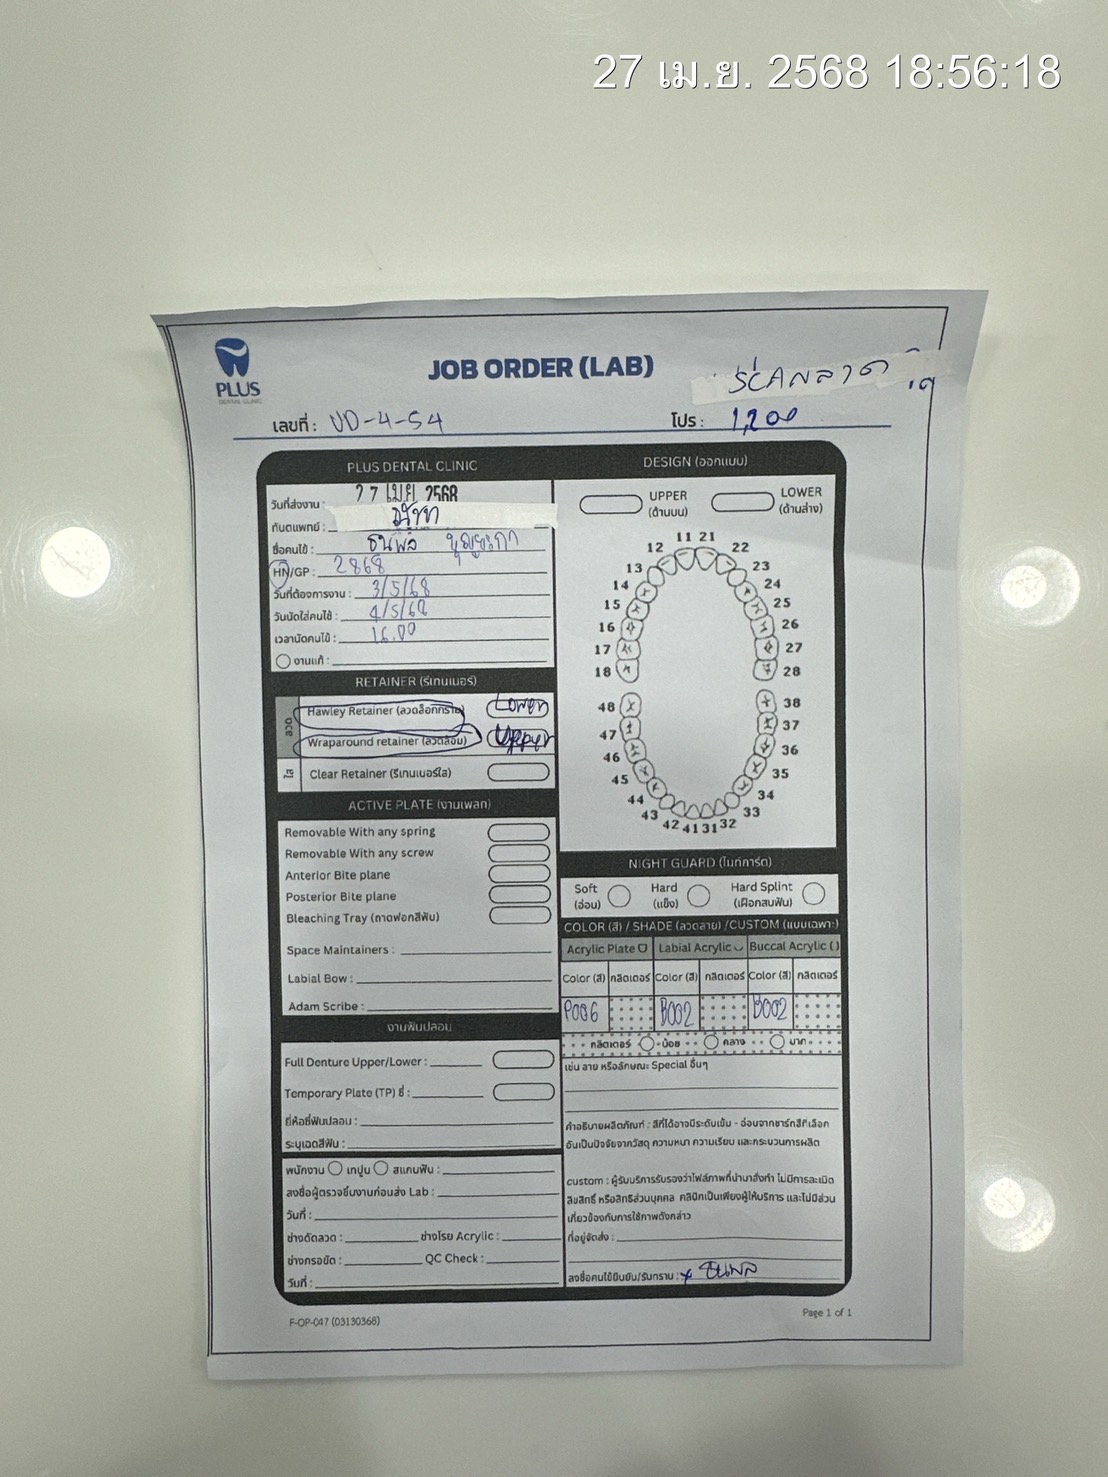 27 เม.ย. 2568 18:56:18
PLUS
DENTAL CLINIC
JOB ORDER (LAB)
SCANลาด
เลขที่ : UD-4-54
โปร : 1,200
PLUS DENTAL CLINIC
วันที่ส่งงาน : 27 เม.ย. 2568
ทันตแพทย์ :
ชื่อคนไข้ : ธนพล
HN/GP : 2868
วันที่ต้องการงาน : 3/5/68
วันนัดใส่คนไข้ : 4/5/68
เวลานัดคนไข้ : 16.00
งานแก้ :
RETAINER (รีเทนเนอร์)
ลวด
Hawley Retainer (ลวดล็อกกราม) Lower
Wraparound retainer (ลวดล้อม) Upper
ใส
Clear Retainer (รีเทนเนอร์ใส)
ACTIVE PLATE (งานเพลท)
Removable With any spring
Removable With any screw
Anterior Bite plane
Posterior Bite plane
Bleaching Tray (ถาดฟอกสีฟัน)
Space Maintainers :
Labial Bow :
Adam Scribe :
งานฟันปลอม
Full Denture Upper/Lower :
Temporary Plate (TP) ซี่ :
ยี่ห้อซี่ฟันปลอม :
ระบุเฉดสีฟัน :
พนักงาน เทปูน สแกนฟัน :
ลงชื่อผู้ตรวจชิ้นงานก่อนส่ง Lab :
วันที่ :
ช่างดัดลวด : ช่างโรย Acrylic :
ช่างกรอขัด : QC Check :
วันที่ :
DESIGN (ออกแบบ)
UPPER
(ด้านบน)
LOWER
(ด้านล่าง)
11 21
12 22
13 23
14 24
15 25
16 26
17 27
18 28
48 38
47 37
46 36
45 35
44 34
43 33
42 41 31 32
NIGHT GUARD (ไนท์การ์ด)
Soft
(อ่อน)
Hard
(แข็ง)
Hard Splint
(เฝือกสบฟัน)
COLOR (สี) / SHADE (ลวดลาย) /CUSTOM (แบบเฉพาะ)
Acrylic Plate Labial Acrylic Buccal Acrylic ( )
Color (สี) กลิตเตอร์ Color (สี) กลิตเตอร์ Color (สี) กลิตเตอร์
P006 B002 B002
กลิตเตอร์ น้อย กลาง มาก
เช่น ลาย หรือลักษณะ Special อื่นๆ
คำอธิบายผลิตภัณฑ์ : สีที่ได้อาจมีระดับเข้ม - อ่อนจากชาร์ทสีที่เลือก
อันเป็นปัจจัยจากวัสดุ ความหนา ความเรียบ และกระบวนการผลิต
custom : ผู้รับบริการรับรองว่าไฟล์ภาพที่นำมาสั่งทำ ไม่มีการละเมิด
ลิขสิทธิ์ หรือสิทธิส่วนบุคคล คลินิกเป็นเพียงผู้ให้บริการ และไม่มีส่วน
เกี่ยวข้องกับการใช้ภาพดังกล่าว
ที่อยู่จัดส่ง :
ลงชื่อคนไข้ยืนยัน/รับทราบ : ธนพล
F-OP-047 (03130368)
Page 1 of 1